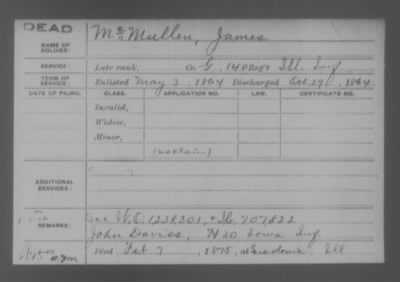 DEAD
NAME OF SOLDIER:
McMullen, James
SERVICE:
Late rank, Co. G, 140 Regt Ill. Inf.
TERM OF SERVICE:
Enlisted May 3, 1864 Discharged Oct 29, 1864
DATE OF FILING. CLASS. APPLICATION NO. LAW. CERTIFICATE NO.
Invalid,
Widow,
Minor,
(no claim)
ADDITIONAL SERVICES:
REMARKS:
See W.O. 1238301, & 707822
John Daviss, H 30 Iowa Inf
Died Feb 7, 1875, at Ill